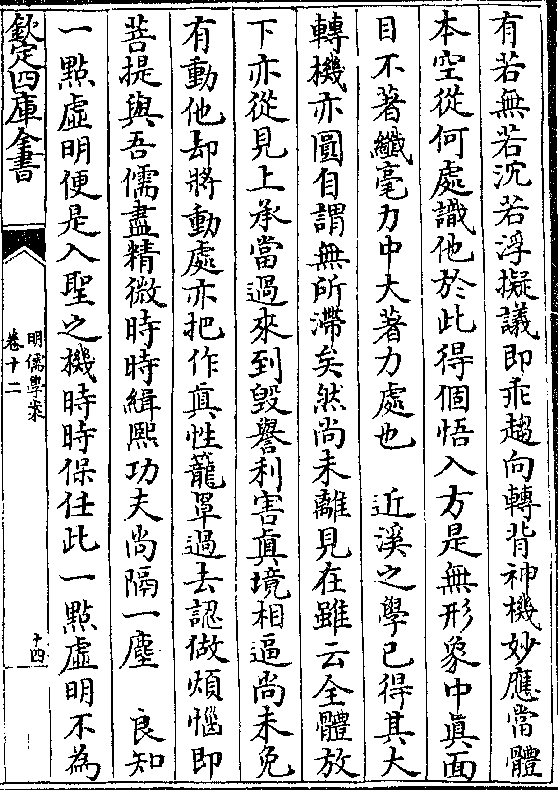 有若無若沉若浮擬議即乖趨向轉背神機妙應當體
本空從何處識他於此得個悟入方是無形象中真面
目不著纖毫力中大著力處也　近溪之學已得其大
轉機亦圓自謂無所滯矣然尚未離見在雖云全體放
下亦從見上承當過來到毀譽利害真境相逼尚未免
有動他却將動處亦把作真性籠罩過去認做煩惱即
菩提與吾儒盡精微時時緝熙功夫尚隔一塵　良知
一點虛明便是入聖之機時時保任此一點虛明不為
欽定四庫全書
明儒學案
卷十二
十四